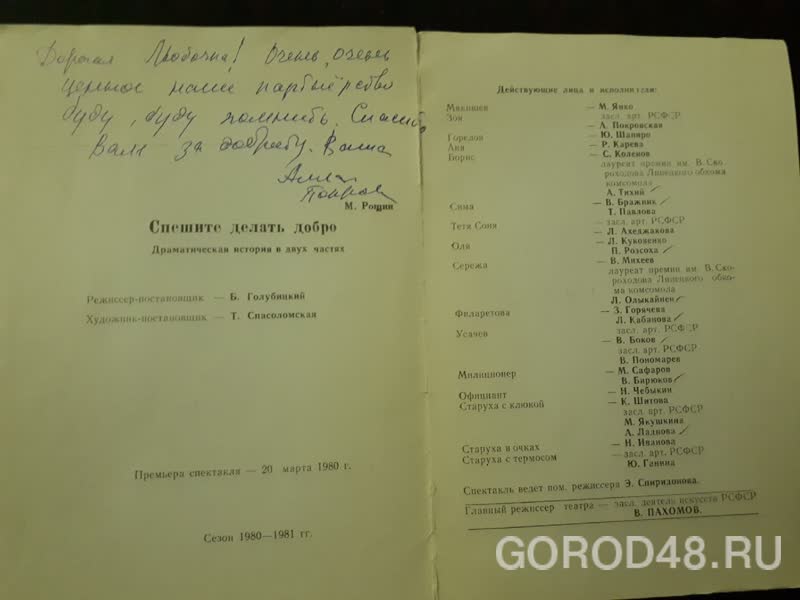 Дорогая Любочка! Очень, очень
ценное наше партнёрство
буду, буду помнить. Спасибо
Вам за доброту. Ваша
М. Рощин
Спешите делать добро
Драматическая история в двух частях
Режиссер-постановщик — Б. Голубицкий
Художник-постановщик — Т. Спасоломская
Премьера спектакля — 20 марта 1980 г.
Сезон 1980—1981 гг.
Действующие лица и исполнители:
Мякишев — М. Янко
Зоя засл. арт. РСФСР
— Л. Покровская
Горелов — Ю. Шапиро
Аня — Р. Карева
Борис — С. Коленов
лауреат премии им. В. Ско-
роходова Липецкого обкома
комсомола
А. Тихий
— В. Бражник
Сима Т. Павлова
— засл. арт. РСФСР
Тетя Соня — Л. Ахеджакова
Оля — Л. Куковенко
П. Розсоха
Сережа — В. Михеев
лауреат премии им. В. Ско-
роходова Липецкого обко-
ма комсомола
Л. Олыкайнен
Филаретова — З. Горячева
Л. Кабанова
Усачев засл. арт. РСФСР
— В. Боков
засл. арт. РСФСР
В. Пономарев
Милиционер — М. Сафаров
В. Бирюков
Официант — Н. Чебыкин
Старуха с клюкой — К. Шитова
засл. арт. РСФСР
М. Якушкина
А. Ладнова
Старуха в очках — Н. Иванова
Старуха с термосом — засл. арт. РСФСР
Ю. Ганина
Спектакль ведет пом. режиссера Э. Спиридонова.
Главный режиссер театра — засл. деятель искусств РСФСР
В. ПАХОМОВ.
GOROD48.RU